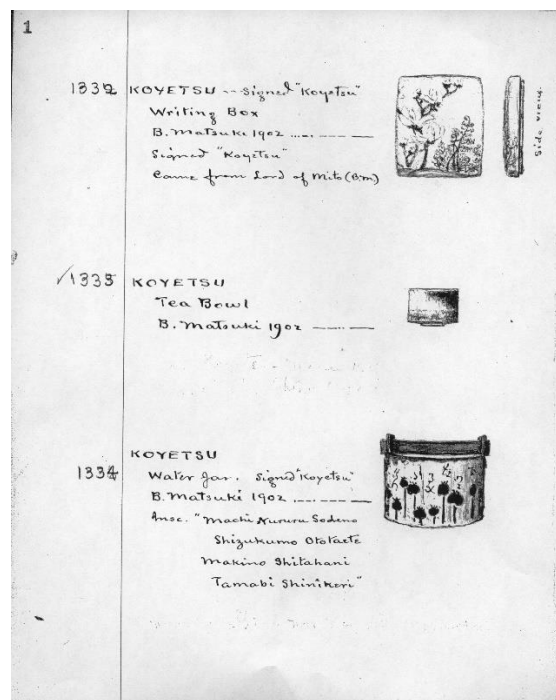 1
1332 KOYETSU -- Signed "Koyetsu"
Writing Box
B. Matsuki 1902
Signed "Koyetsu"
Came from Lord of Mito (B.M)
Side view.
✓1333 KOYETSU
Tea Bowl
B. Matsuki 1902
KOYETSU
1334 Water Jar. Signed "Koyetsu"
B. Matsuki 1902
Insc. "Machi Kururu Sodeno
Shizukumo Ototaete
Makino Shitahani
Tamabi Shinikeri"